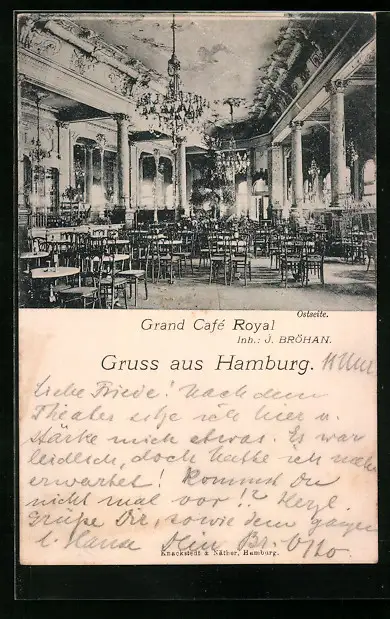 Ostseite.
Grand Café Royal
Inh.: J. BRÖHAN.
Gruss aus Hamburg. 11 Uhr
Liebe Friede! Nach dem
Theater sitze ich hier u.
stärke mich etwas. Es war
leidlich, doch hatte ich mehr
erwartet! Kommst Du
nicht mal vor!? Herzl.
Grüße Dir, sowie dem ganzen
l. Hause Dein Br. Otto.
Knackstedt & Näther, Hamburg.